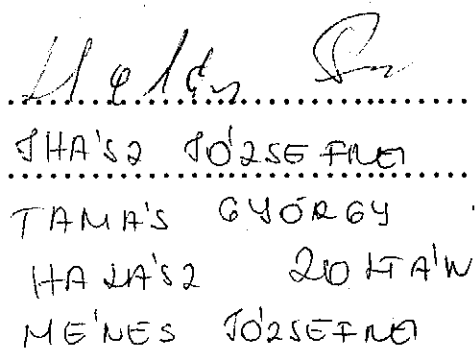 IHÁSZ JÓZSEFNÉ
TAMÁS GYÖRGY
HALÁSZ ZOLTÁN
MÉNES JÓZSEFNÉ